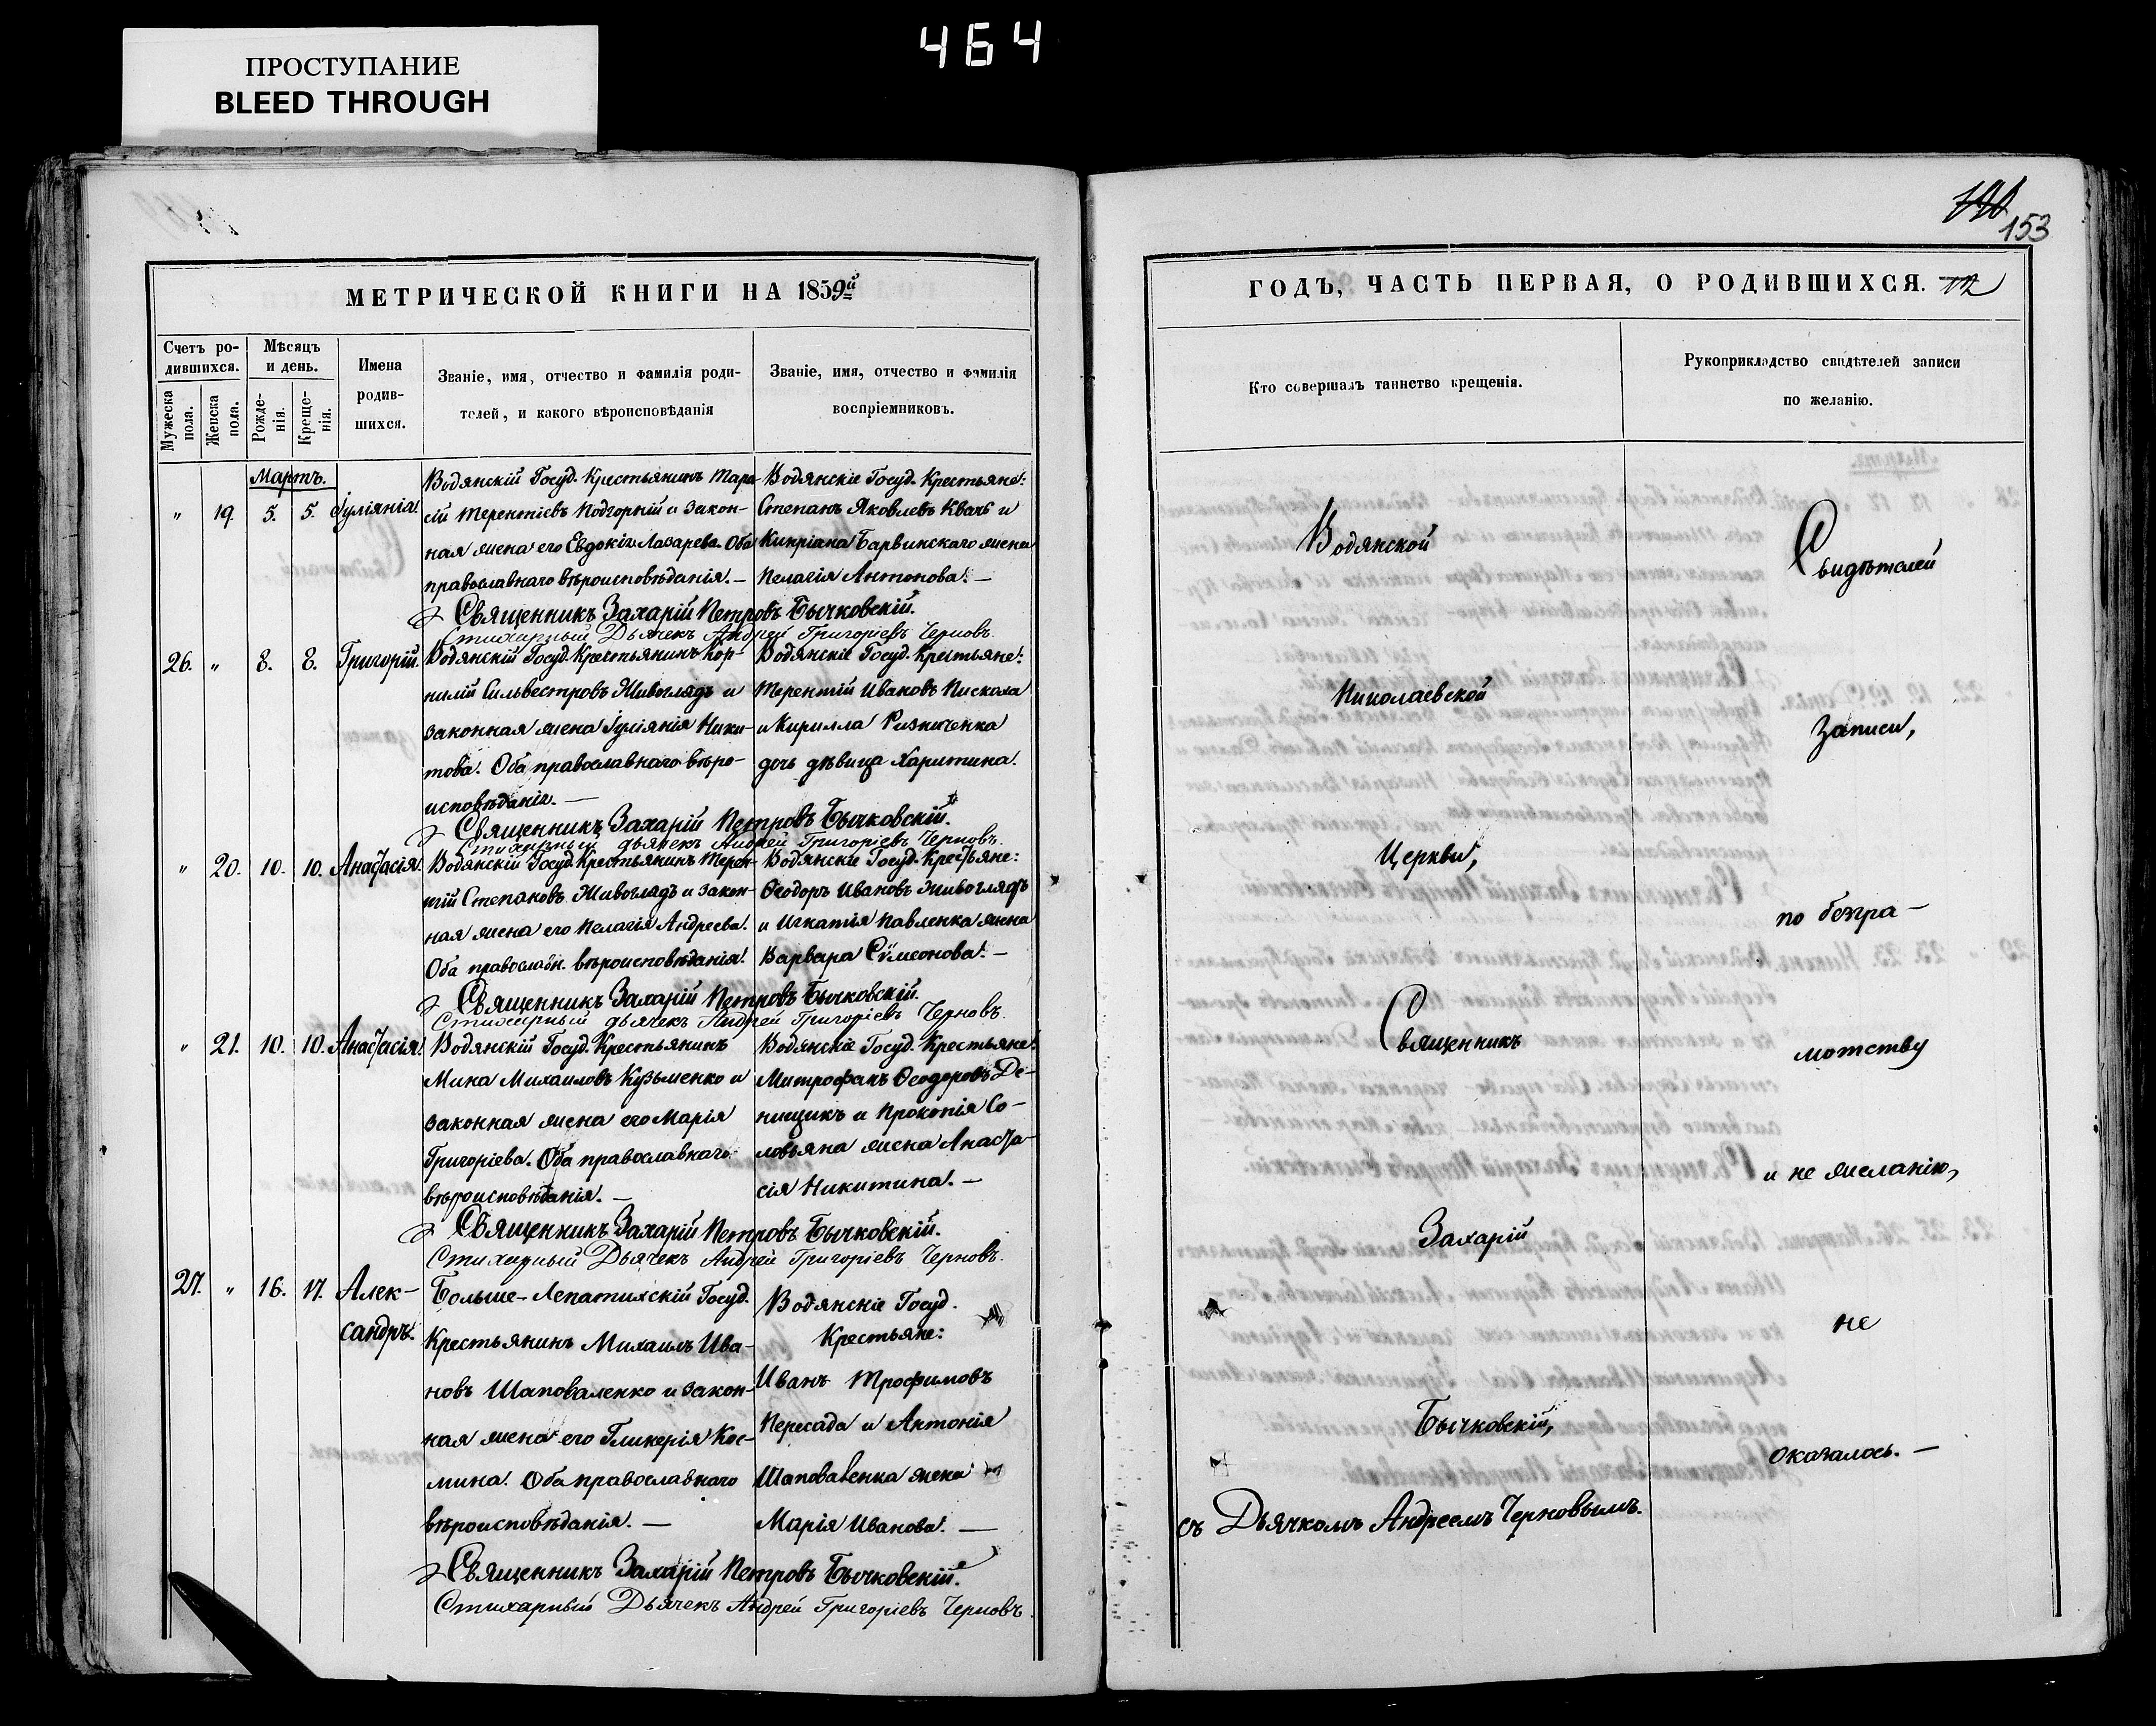 464
ПРОСТУПАНИЕ
BLEED THROUGH
153
МЕТРИЧЕСКОЙ КНИГИ НА 1859й
Счетъ ро-
дившихся.
Мужеска пола.
Женска пола.
Мѣсяцъ
и день.
Рожде-
нія.
Креще-
нія.
Имена
родив-
шихся.
Званіе, имя, отчество и фамилія роди-
телей, и какого вѣроисповѣданія
Званіе, имя, отчество и фамилія
воспріемниковъ.
Мартъ.
" 19. 5. 5. Іуліянія.
Водянскій Госуд. Крестьянинъ Тара-
сій Терентіевъ Подгорній и закон-
ная жена его Евдокія Лазарева. Оба
православнаго вѣроисповѣданія. —
Водянскіе Госуд. Крестьяне:
Степанъ Яковлевъ Квачъ и
Кипріана Барвинскаго жена
Пелагія Антонова. —
Священникъ Захарій Петровъ Бычковскій.
Стихарный Дьячекъ Андрей Григоріевъ Черновъ.
26. " 8. 8. Григорій.
Водянскій Госуд. Крестьянинъ Кор-
нилій Сильвестровъ Живоглядъ и
законная жена Іуліянія Ники-
това. Оба православнаго вѣро-
исповѣданія. —
Водянскіе Госуд. Крестьяне:
Терентій Ивановъ Пискоха
и Кирилла Ризниченка
дочь дѣвица Харитина.
Священникъ Захарій Петровъ Бычковскій.
Стихарный дьячекъ Андрей Григоріевъ Черновъ.
" 20. 10. 10. Анастасія.
Водянскій Госуд. Крестьянинъ Терен-
тій Степановъ Живоглядъ и закон-
ная жена его Пелагія Андреева.
Оба православн. вѣроисповѣданія.
Водянскіе Госуд. Крестьяне:
Ѳеодоръ Ивановъ Живоглядъ
и Игнатія Павленка жена
Варвара Сѵмеонова. —
Священникъ Захарій Петровъ Бычковскій.
Стихарный дьячекъ Андрей Григоріевъ Черновъ.
" 21. 10. 10. Анастасія.
Водянскій Госуд. Крестьянинъ
Мина Михаиловъ Кузьменко и
законная жена его Марія
Григоріева. Оба православнаго
вѣроисповѣданія. —
Водянскіе Госуд. Крестьяне:
Митрофанъ Ѳеодоровъ Де-
нищикъ и Прокопія Со-
ловьяна жена Анаста-
сія Никитина. —
Священникъ Захарій Петровъ Бычковскій.
Стихарный Дьячекъ Андрей Григоріевъ Черновъ.
27. " 16. 17. Алек-
сандръ.
Больше-Лепатихскій Госуд.
Крестьянинъ Михаилъ Ива-
новъ Шаповаленко и закон-
ная жена его Гликерія Кос-
мина. Оба православнаго
вѣроисповѣданія. —
Водянскіе Госуд.
Крестьяне:
Иванъ Трофимовъ
Пересада и Антонія
Шаповаленка жена
Марія Иванова. —
Священникъ Захарій Петровъ Бычковскій.
Стихарный Дьячекъ Андрей Григоріевъ Черновъ.
ГОДЪ, ЧАСТЬ ПЕРВАЯ, О РОДИВШИХСЯ.
Кто совершалъ таинство крещенія.
Рукоприкладство свидѣтелей записи
по желанію.
Водянской
Николаевской
Церкви,
Священникъ
Захарій
Бычковскій,
съ Дьячкомъ Андреемъ Черновымъ.
Свидѣтелей
записи,
по безгра-
мотству
и не желанію,
не
оказалось. —